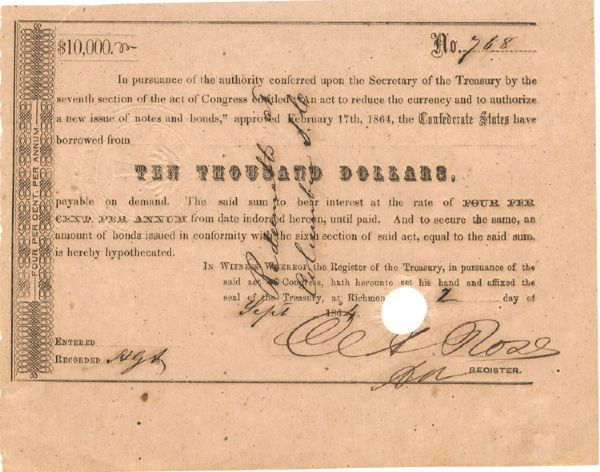 $10,000.
No. 768
In pursuance of the authority conferred upon the Secretary of the Treasury by the
seventh section of the act of Congress entitled "An act to reduce the currency and to authorize
a new issue of notes and bonds," approved February 17th, 1864, the Confederate States have
borrowed from
TEN THOUSAND DOLLARS,
payable on demand. The said sum to bear interest at the rate of FOUR PER
CENT. PER ANNUM from date indorsed hereon, until paid. And to secure the same, an
amount of bonds issued in conformity with the sixth section of said act, equal to the said sum,
is hereby hypothecated.
In Witness Whereof, the Register of the Treasury, in pursuance of the
said act of Congress, hath hereunto set his hand and affixed the
seal of the Treasury, at Richmond 2 day of
Sept 1864
C A Rose
Entered
Recorded
REGISTER.
FOUR PER CENT. PER ANNUM
Columbia S. C.